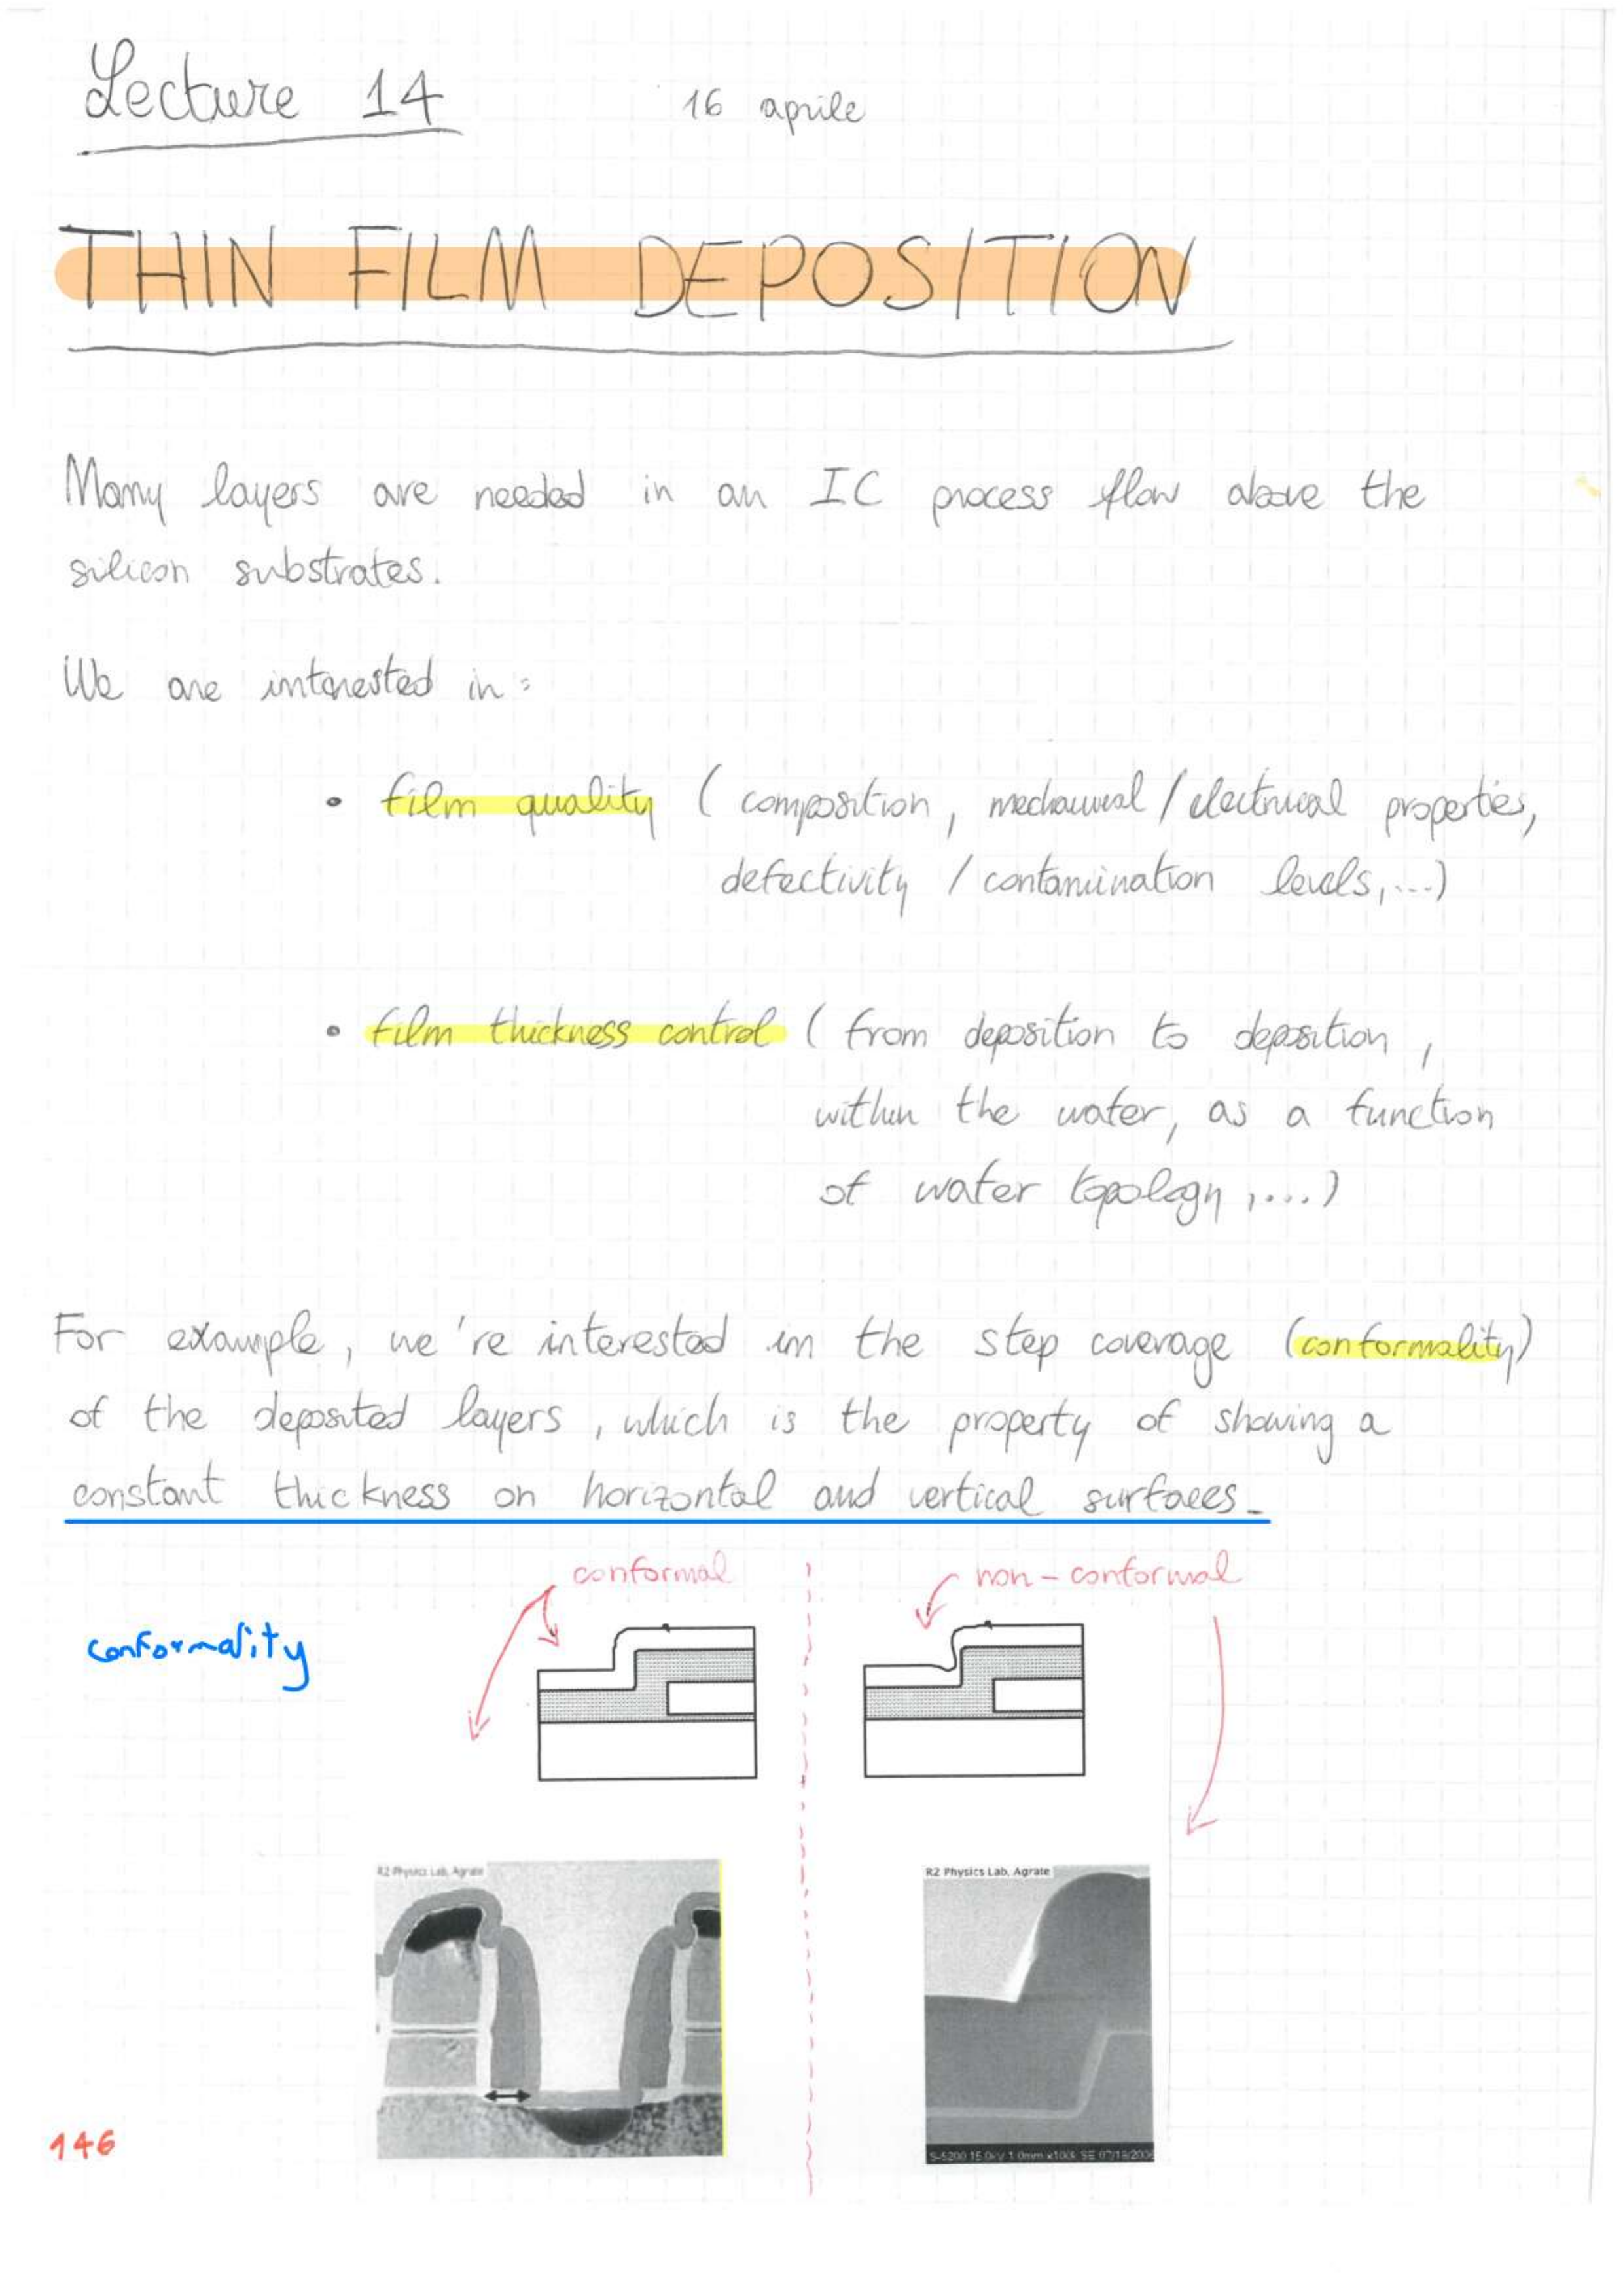 Lecture 14
16 aprile
THIN FILM DEPOSITION
Many layers are needed in an IC process flow above the
silicon substrates.
We are interested in:
• film quality ( composition, mechanical / electrical properties,
defectivity / contamination levels, ...)
• film thickness control ( from deposition to deposition,
within the wafer, as a function
of wafer topology, ....)
For example, we're interested in the step coverage (conformality)
of the deposited layers, which is the property of showing a
constant thickness on horizontal and vertical surfaces.
conformal
non-conformal
conformality
R2 Physics Lab, Agrate
R2 Physics Lab, Agrate
S-5200 15.0kV 1.0mm x100k SE
146